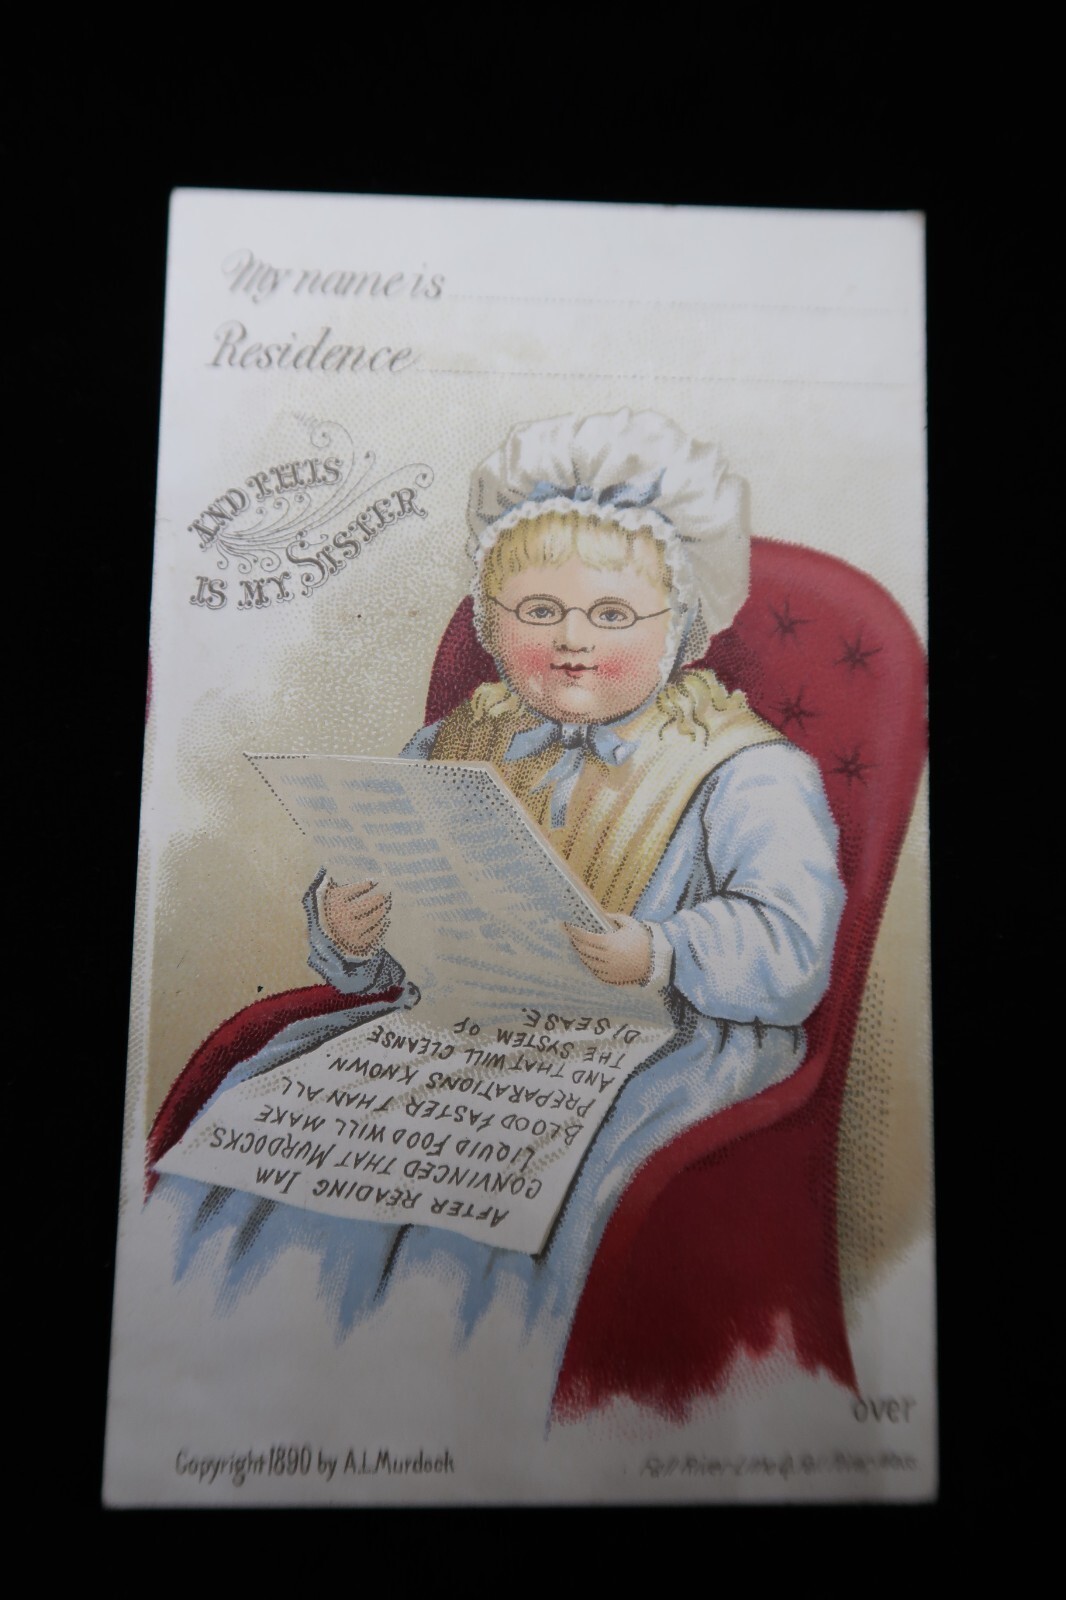 My name is
Residence
AND THIS
IS MY SISTER
AFTER READING IAM
CONVINCED THAT MURDOCKS
LIQUID FOOD WILL MAKE
BLOOD FASTER THAN ALL
PREPARATIONS KNOWN.
AND THAT WILL CLEANSE
THE SYSTEM OF
DISEASE.
over
Copyright 1890 by A.L. Murdock
Fall River Litho